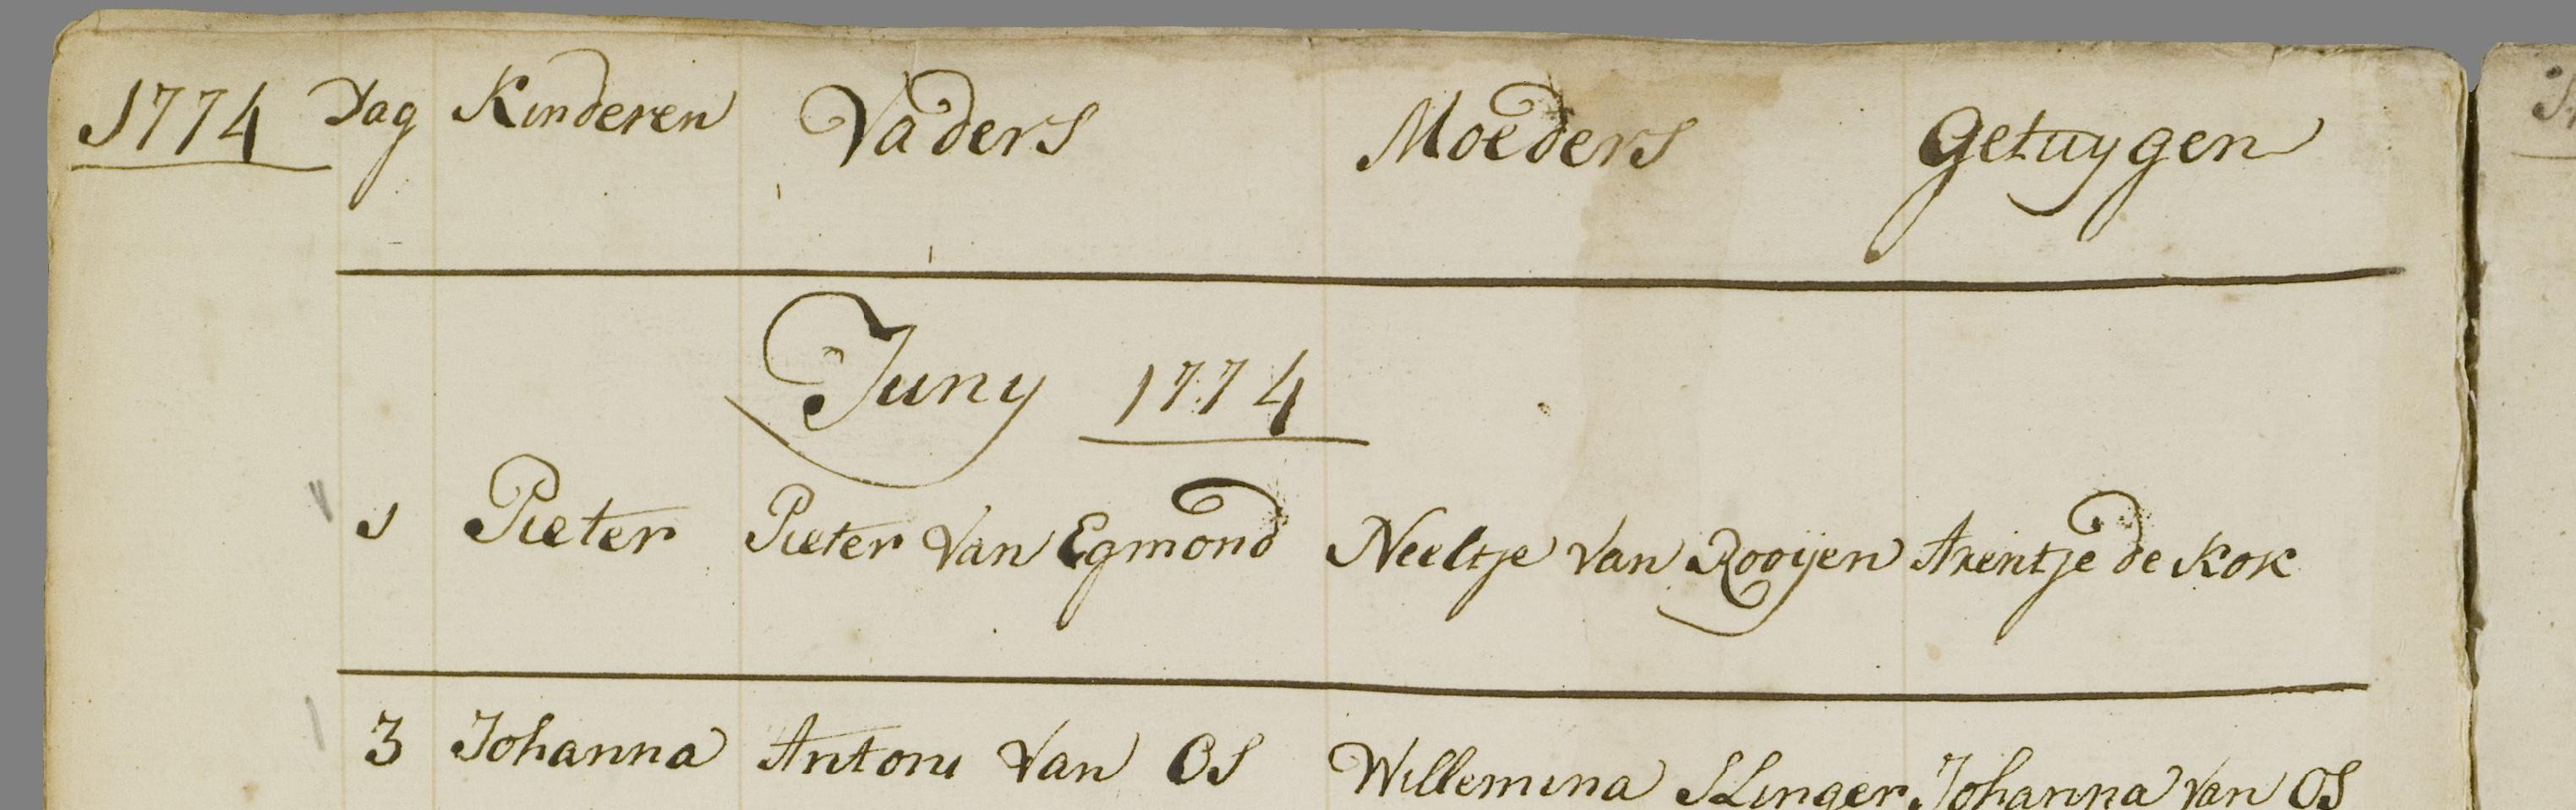 1774 Dag Kinderen Vaders Moeders Getuygen
Juny 1774
1 Pieter Pieter Van Egmond Neeltje Van Rooijen Arentje de Kok
3 Johanna Antoni Van Os Willemina Slinger Johanna Van Os